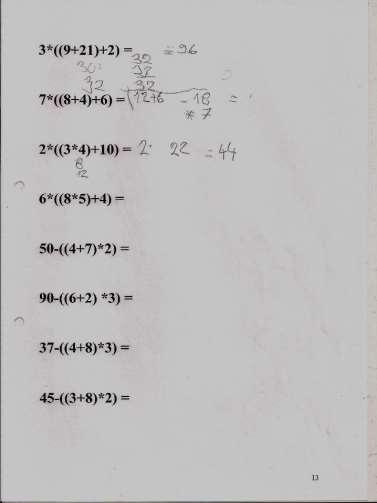 3*((9+21)+2) = 32 = 96
30 32
32 32
7*((8+4)+6) = 12+6 - 18 =
* 7
2*((3*4)+10) = 2· 22 = 44
8
12
6*((8*5)+4) =
50-((4+7)*2) =
90-((6+2) *3) =
37-((4+8)*3) =
45-((3+8)*2) =
13